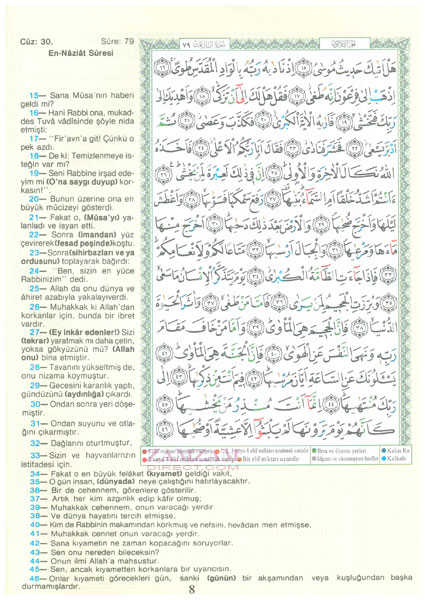 Cüz: 30, Sûre: 79
En-Nâziât Sûresi
15— Sana Mûsa'nın haberi
geldi mi?
16— Hani Rabbi ona, mukad-
des Tuvâ vâdîsinde şöyle nida
etmişti:
17— "Fir'avn'a git! Çünkü o
pek azdı.
18— De ki: Temizlenmeye is-
teğin var mı?
19— Seni Rabbine irşad ede-
yim mi (O'na saygı duyup) kor-
kasın!".
20— Bunun üzerine ona en
büyük mûcizeyi gösterdi.
21— Fakat o, (Mûsa'yı) ya-
lanladı ve isyan etti.
22— Sonra (imandan) yüz
çevirerek(fesad peşinde)koştu.
23—Sonra(sihirbazları ve ya
ordusunu) toplayarak bağırdı:
24— "Ben, sizin en yüce
Rabbinizim" dedi.
25— Allah da onu dünya ve
âhiret azabıyla yakalayıverdi.
26— Muhakkak ki Allah'dan
korkanlar için, bunda bir ibret
vardır.
27— (Ey inkâr edenler!) Sizi
(tekrar) yaratmak mı daha çetin,
yoksa gökyüzünü mü? (Allah
onu) bina etmiştir.
28— Tavanını yükseltmiş de,
onu nizama koymuştur.
29— Gecesini karanlık yaptı,
gündüzünü (aydınlığa) çıkardı.
30— Ondan sonra yeri döşe-
miştir.
31— Ondan suyunu ve otla-
ğını çıkarmıştır.
32— Dağlarını oturtmuştur.
33— Sizin ve hayvanlarınızın
istifadesi için.
34— Fakat o en büyük felâket (kıyamet) geldiği vakit,
35— O gün insan, (dünyada) neye çalıştığını hatırlayacaktır.
36— Bir de cehennem, görenlere gösterilir.
37— Artık her kim azgınlık edip kâfir olmuş;
38— Ve dünya hayatını tercih etmişse,
39— Muhakkak cehennem, onun varacağı yerdir.
40— Kim de Rabbinin makamından korkmuş ve nefsini, hevâdan men etmişse,
41— Muhakkak cennet onun varacağı yerdir.
42— Sana kıyametin ne zaman kopacağını soruyorlar.
43— Sen onu nereden bileceksin?
44— Onun ilmi Allah'a mahsustur.
45— Sen, ancak kıyametten korkanlara bir uyarıcısın.
46— Onlar kıyameti görecekleri gün, sanki (günün) bir akşamından veya kuşluğundan başka
durmamışlardır.
٧٩
هل اتيك حديث موسى ١٥ اذ ناديه ربه بالواد المقدس طوى ١٦
اذهب الى فرعون انه طغى ١٧ فقل هل لك الى ان تزكى ١٨ واهديك الى
ربك فتخشى ١٩ فاريه الاية الكبرى ٢٠ فكذب وعصى ٢١ ثم
ادبر يسعى ٢٢ فحشر فنادى ٢٣ فقال انا ربكم الاعلى ٢٤ فاخذه
الله نكال الاخرة والاولى ٢٥ ان في ذلك لعبرة لمن يخشى ٢٦
ءانتم اشد خلقا ام السماء بنيها ٢٧ رفع سمكها فسويها ٢٨ واغطش
ليلها واخرج ضحيها ٢٩ والارض بعد ذلك دحيها ٣٠ اخرج منها
ماءها ومرعيها ٣١ والجبال ارسيها ٣٢ متاعا لكم ولانعامكم
٣٣ فاذا جاءت الطامة الكبرى ٣٤ يوم يتذكر الانسان ما سعى
٣٥ وبرزت الجحيم لمن يرى ٣٦ فاما من طغى ٣٧ واثر الحيوة
الدنيا ٣٨ فان الجحيم هي الماوى ٣٩ واما من خاف مقام
ربه ونهى النفس عن الهوى ٤٠ فان الجنة هي الماوى ٤١
يسئلونك عن الساعة ايان مرسيها ٤٢ فيم انت من ذكريها ٤٣ الى
ربك منتهيها ٤٤ انما انت منذر من يخشيها ٤٥
كانهم يوم يرونها لم يلبثوا الا عشية او ضحيها ٤٦
DIRECT.COM
8